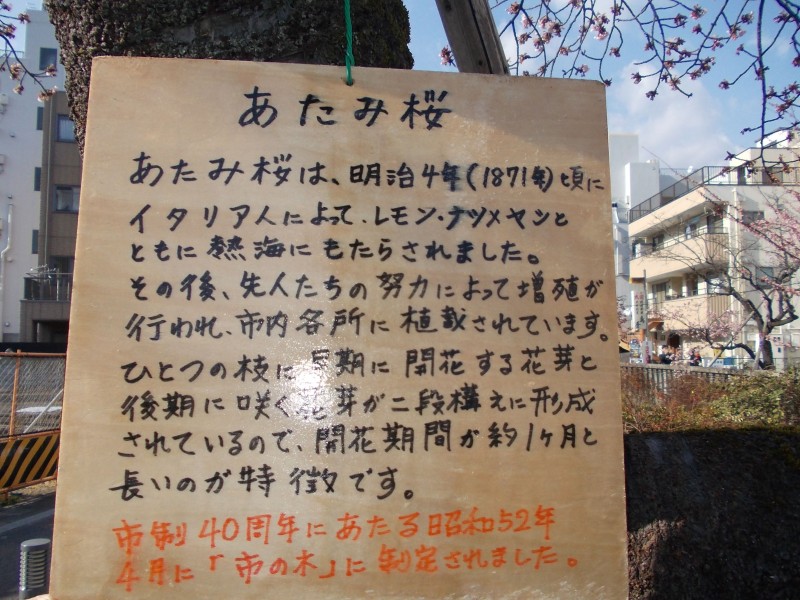 あたみ桜
あたみ桜は、明治4年(1871年)頃に
イタリア人によって、レモン・ナツメヤシと
ともに熱海にもたらされました。
その後、先人たちの努力によって増殖が
行われ、市内各所に植栽されています。
ひとつの枝に早期に開花する花芽と
後期に咲く花芽が二段構えに形成
されているので、開花期間が約1ヶ月と
長いのが特徴です。
市制40周年にあたる昭和52年
4月に「市の木」に制定されました。